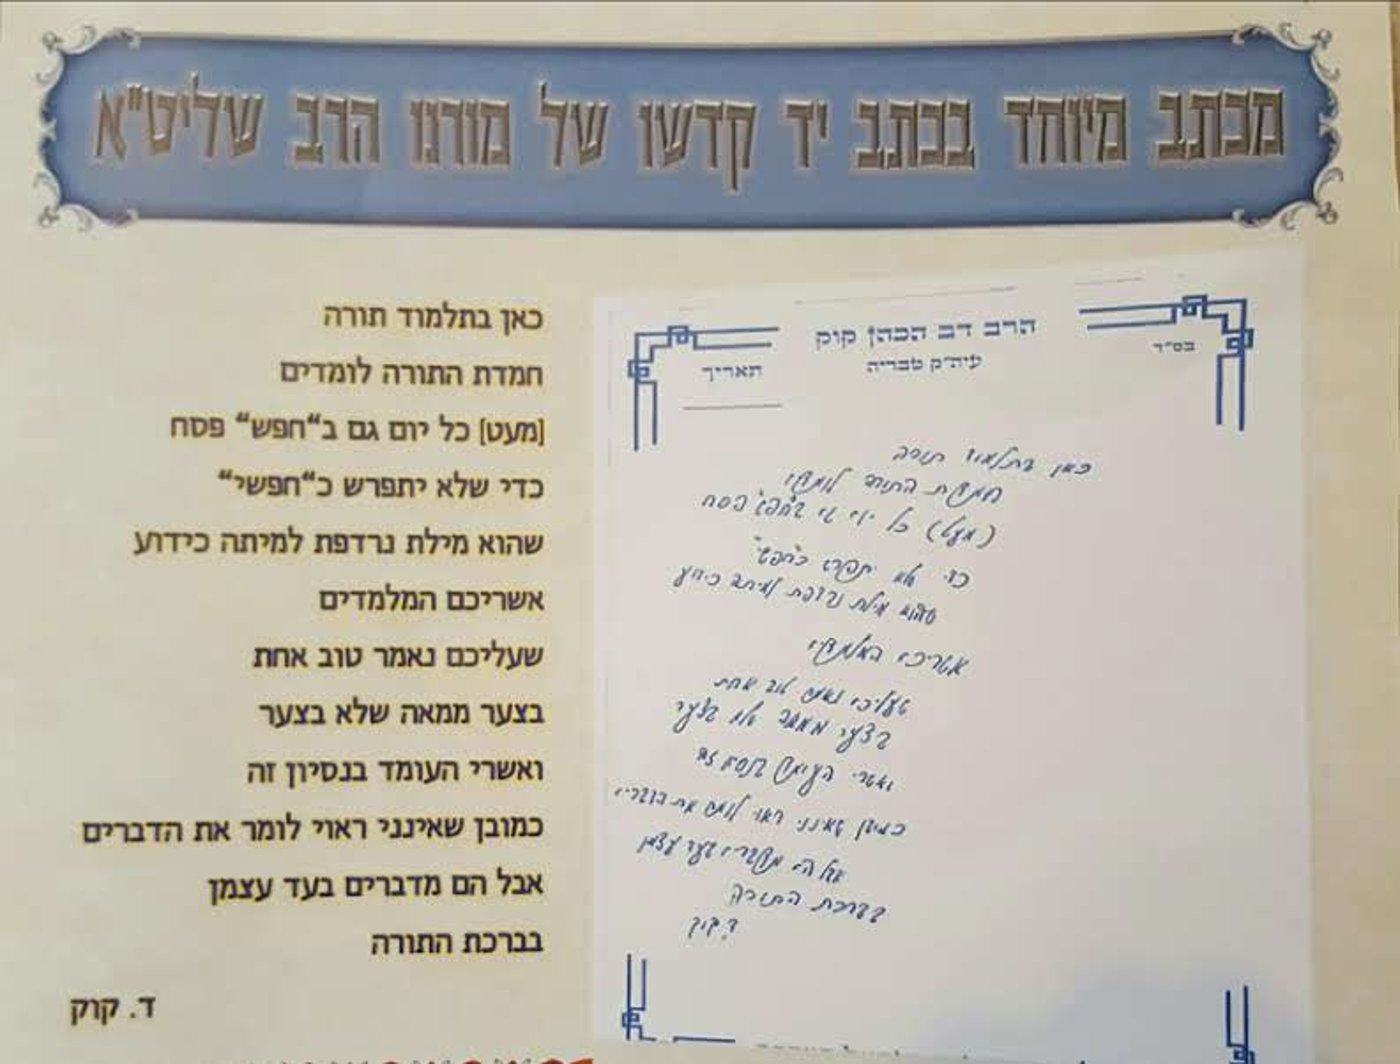 מכתב מיוחד בכתב יד קדשו של מורנו הרב שליט"א
הרב דב הכהן קוק
עיה״ק טבריה
בס״ד
תאריך
כאן בתלמוד תורה
חמדת התורה לומדים
(מעט) כל יום גם ב"חפש" פסח
כדי שלא יתפרש כ"חפשי"
שהוא מילת נרדפת למיתה כידוע
אשריכם המלמדים
שעליכם נאמר טוב אחת
בצער ממאה שלא בצער
ואשרי העומד בנסיון זה
כמובן שאינני ראוי לומר את הדברים
אבל הם מדברים בעד עצמן
בברכת התורה
ד. קוק
כאן בתלמוד תורה
חמדת התורה לומדים
[מעט] כל יום גם ב"חפש" פסח
כדי שלא יתפרש כ"חפשי"
שהוא מילת נרדפת למיתה כידוע
אשריכם המלמדים
שעליכם נאמר טוב אחת
בצער ממאה שלא בצער
ואשרי העומד בנסיון זה
כמובן שאינני ראוי לומר את הדברים
אבל הם מדברים בעד עצמן
בברכת התורה
ד. קוק